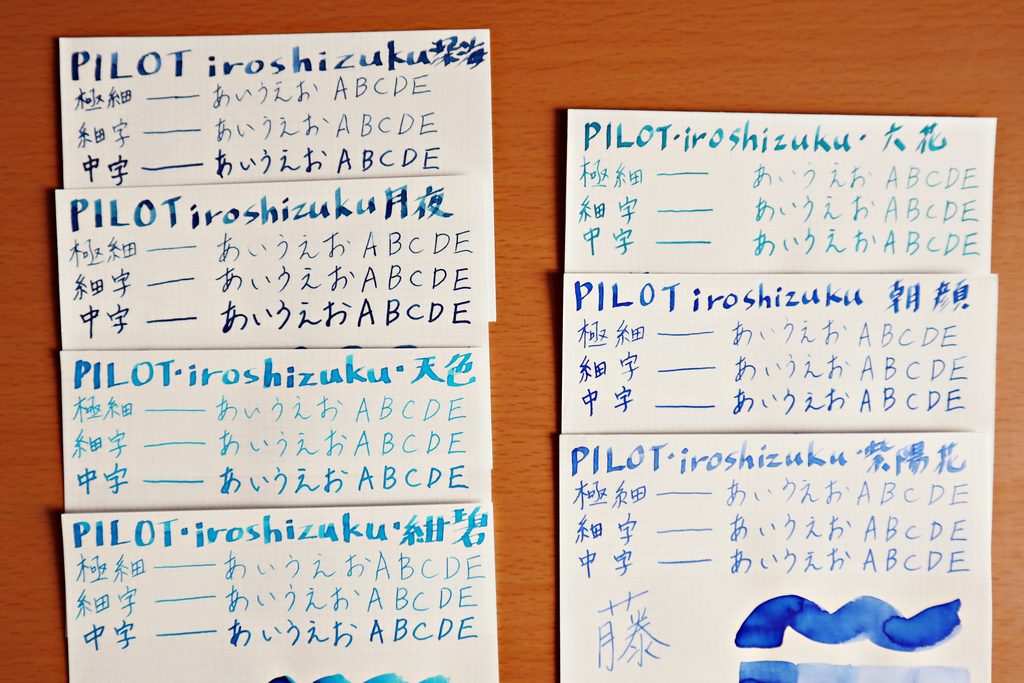 PILOT iroshizuku 深海
極細 — あいうえお ABCDE
細字 — あいうえお ABCDE
中字 — あいうえお ABCDE
PILOT iroshizuku 月夜
極細 — あいうえお ABCDE
細字 — あいうえお ABCDE
中字 — あいうえお ABCDE
PILOT・iroshizuku・天色
極細 — あいうえお ABCDE
細字 — あいうえお ABCDE
中字 — あいうえお ABCDE
PILOT・iroshizuku・紺碧
極細 — あいうえお ABCDE
細字 — あいうえお ABCDE
中字 — あいうえお ABCDE
PILOT・iroshizuku・六花
極細 — あいうえお ABCDE
細字 — あいうえお ABCDE
中字 — あいうえお ABCDE
PILOT iroshizuku 朝顔
極細 — あいうえお ABCDE
細字 — あいうえお ABCDE
中字 — あいうえお ABCDE
PILOT・iroshizuku・紫陽花
極細 — あいうえお ABCDE
細字 — あいうえお ABCDE
中字 — あいうえお ABCDE
藤